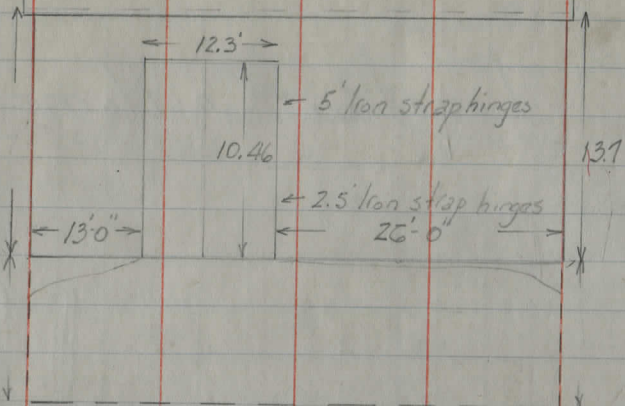 12.3'
5' Iron strap hinges
10.46
13.7
2.5' Iron strap hinges
13'-0"
26'-0"